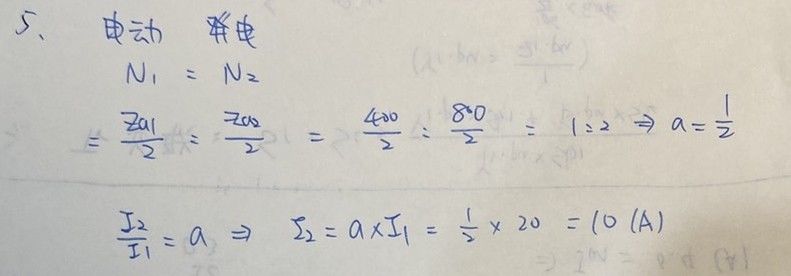 5、 电动 发电
N₁ : N₂
= Za1/2 : Za2/2 = 400/2 : 800/2 = 1:2 ⇒ a = 1/2
I₂/I₁ = a ⇒ I₂ = a×I₁ = 1/2 × 20 = 10 (A)